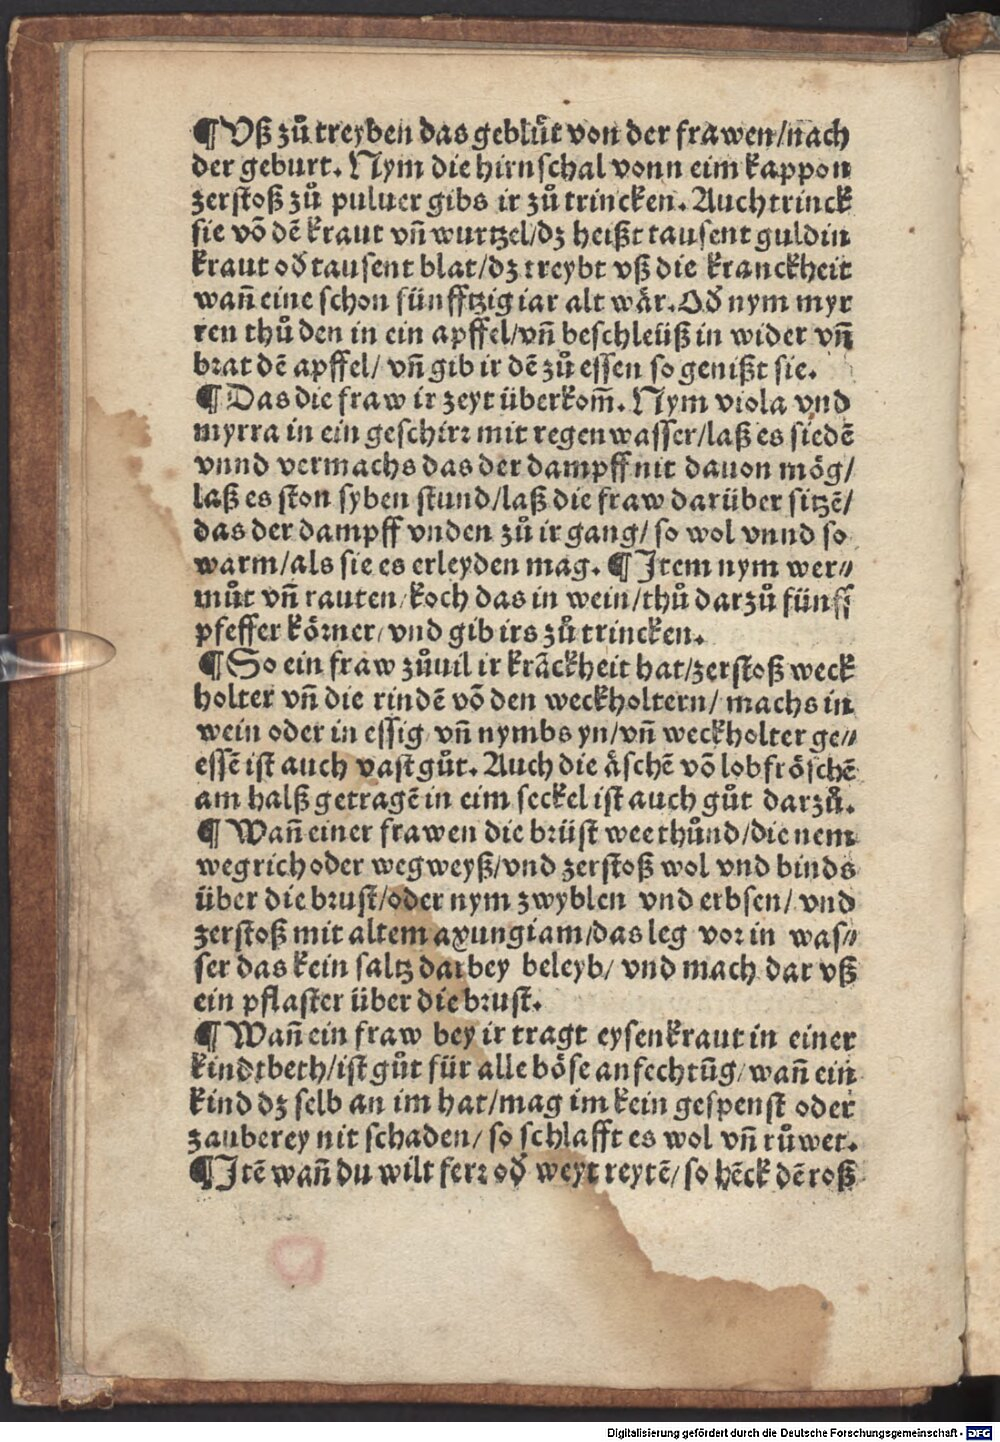 ¶ Vß zů treyben das geblůt von der frawen/nach
der geburt. Nym die hirnschal vonn eim kappon
zerstoß zů puluer gibs ir zů trincken. Auch trinck
sie võ dē kraut vñ wurtzel/dz heißt tausent guldin
kraut oď tausent blat/dz treybt vß die kranckheit
wañ eine schon fünfftzig iar alt wår. Oď nym myr
ren thů den in ein apffel/vñ beschleüß in wider vñ
brat dē apffel/ vñ gib ir dē zů essen so genißt sie.
¶ Das die fraw ir zeyt überkom̄. Nym viola vnd
myrra in ein geschirr mit regen wasser/laß es siedē
vnnd vermachs das der dampff nit dauon mög/
laß es ston syben stund/laß die fraw darüber sitzē/
das der dampff vnden zů ir gang/ so wol vnnd so
warm/als sie es erleyden mag. ¶ Item nym wer⸗
můt vñ rauten/koch das in wein/thů darzů fünff
pfeffer körner/vnd gib irs zů trincken.
¶ So ein fraw zůuil ir krãckheit hat/zerstoß weck
holter vñ die rindē võ den weckholtern/ machs in
wein oder in essig vñ nymbs yn/vñ weckholter ge⸗
essē ist auch vast gůt. Auch die åschē võ lobfröschē
am halß getragē in eim seckel ist auch gůt darzů.
¶ Wañ einer frawen die brüst wee thůnd/die nem
wegrich oder wegweyß/vnd zerstoß wol vnd binds
über die brust/oder nym zwyblen vnd erbsen/ vnd
zerstoß mit altem axungiam/das leg vor in was⸗
ser das kein saltz darbey beleyb/ vnd mach dar vß
ein pflaster über die brust.
¶ Wañ ein fraw bey ir tragt eysenkraut in einer
kindtbeth/ist gůt für alle böse anfechtũg/wañ ein
kind dz selb an im hat/mag im kein gespenst oder
zauberey nit schaden/ so schlafft es wol vñ růwet.
¶ Itē wañ du wilt ferr oď weyt reytē/ so hēck dē roß
Digitalisierung gefördert durch die Deutsche Forschungsgemeinschaft - DFG